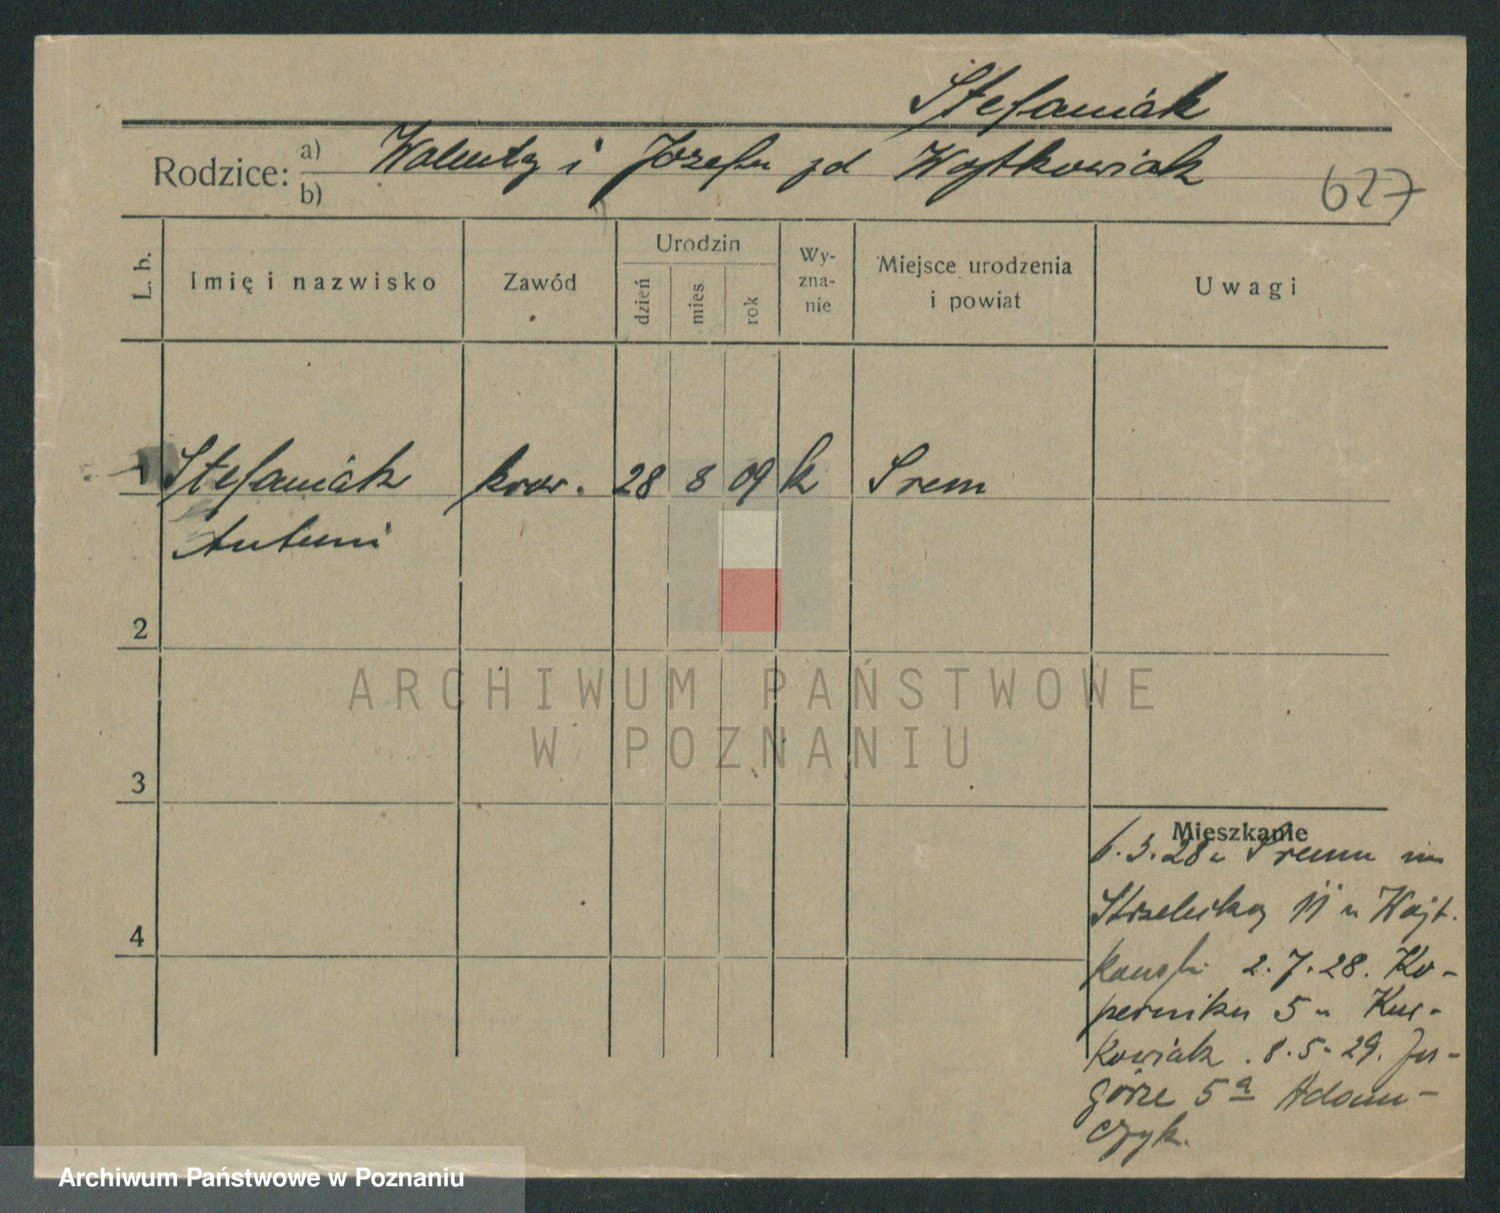 Stefaniak
Rodzice: a) Walenty i Józefa zd Wojtkowiak
b)
627
L. b.
Imię i nazwisko
Zawód
Urodzin
dzień
mies
rok
Wy-
zna-
nie
Miejsce urodzenia
i powiat
Uwagi
1 Stefaniak kraw. 28 8 09 k Śrem
Antoni
2
3
4
ARCHIWUM PAŃSTWOWE
W POZNANIU
Mieszkanie
6.3.28 z Śremu
Strzelecka 11 u Wojt.
2.7.28. Ko-
pernika 5 u Kur-
kowiak. 8.5.29.
górze 5a Adam-
czyk.
Archiwum Państwowe w Poznaniu